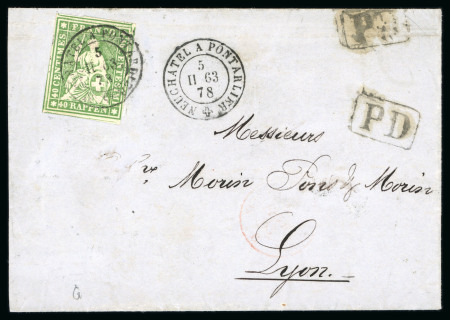 PD
NEUCHATEL A PONTARLIER
5
II 63
78
40 RAPPEN
PD
Messieurs
Morin Pons & Morin
Lyon.